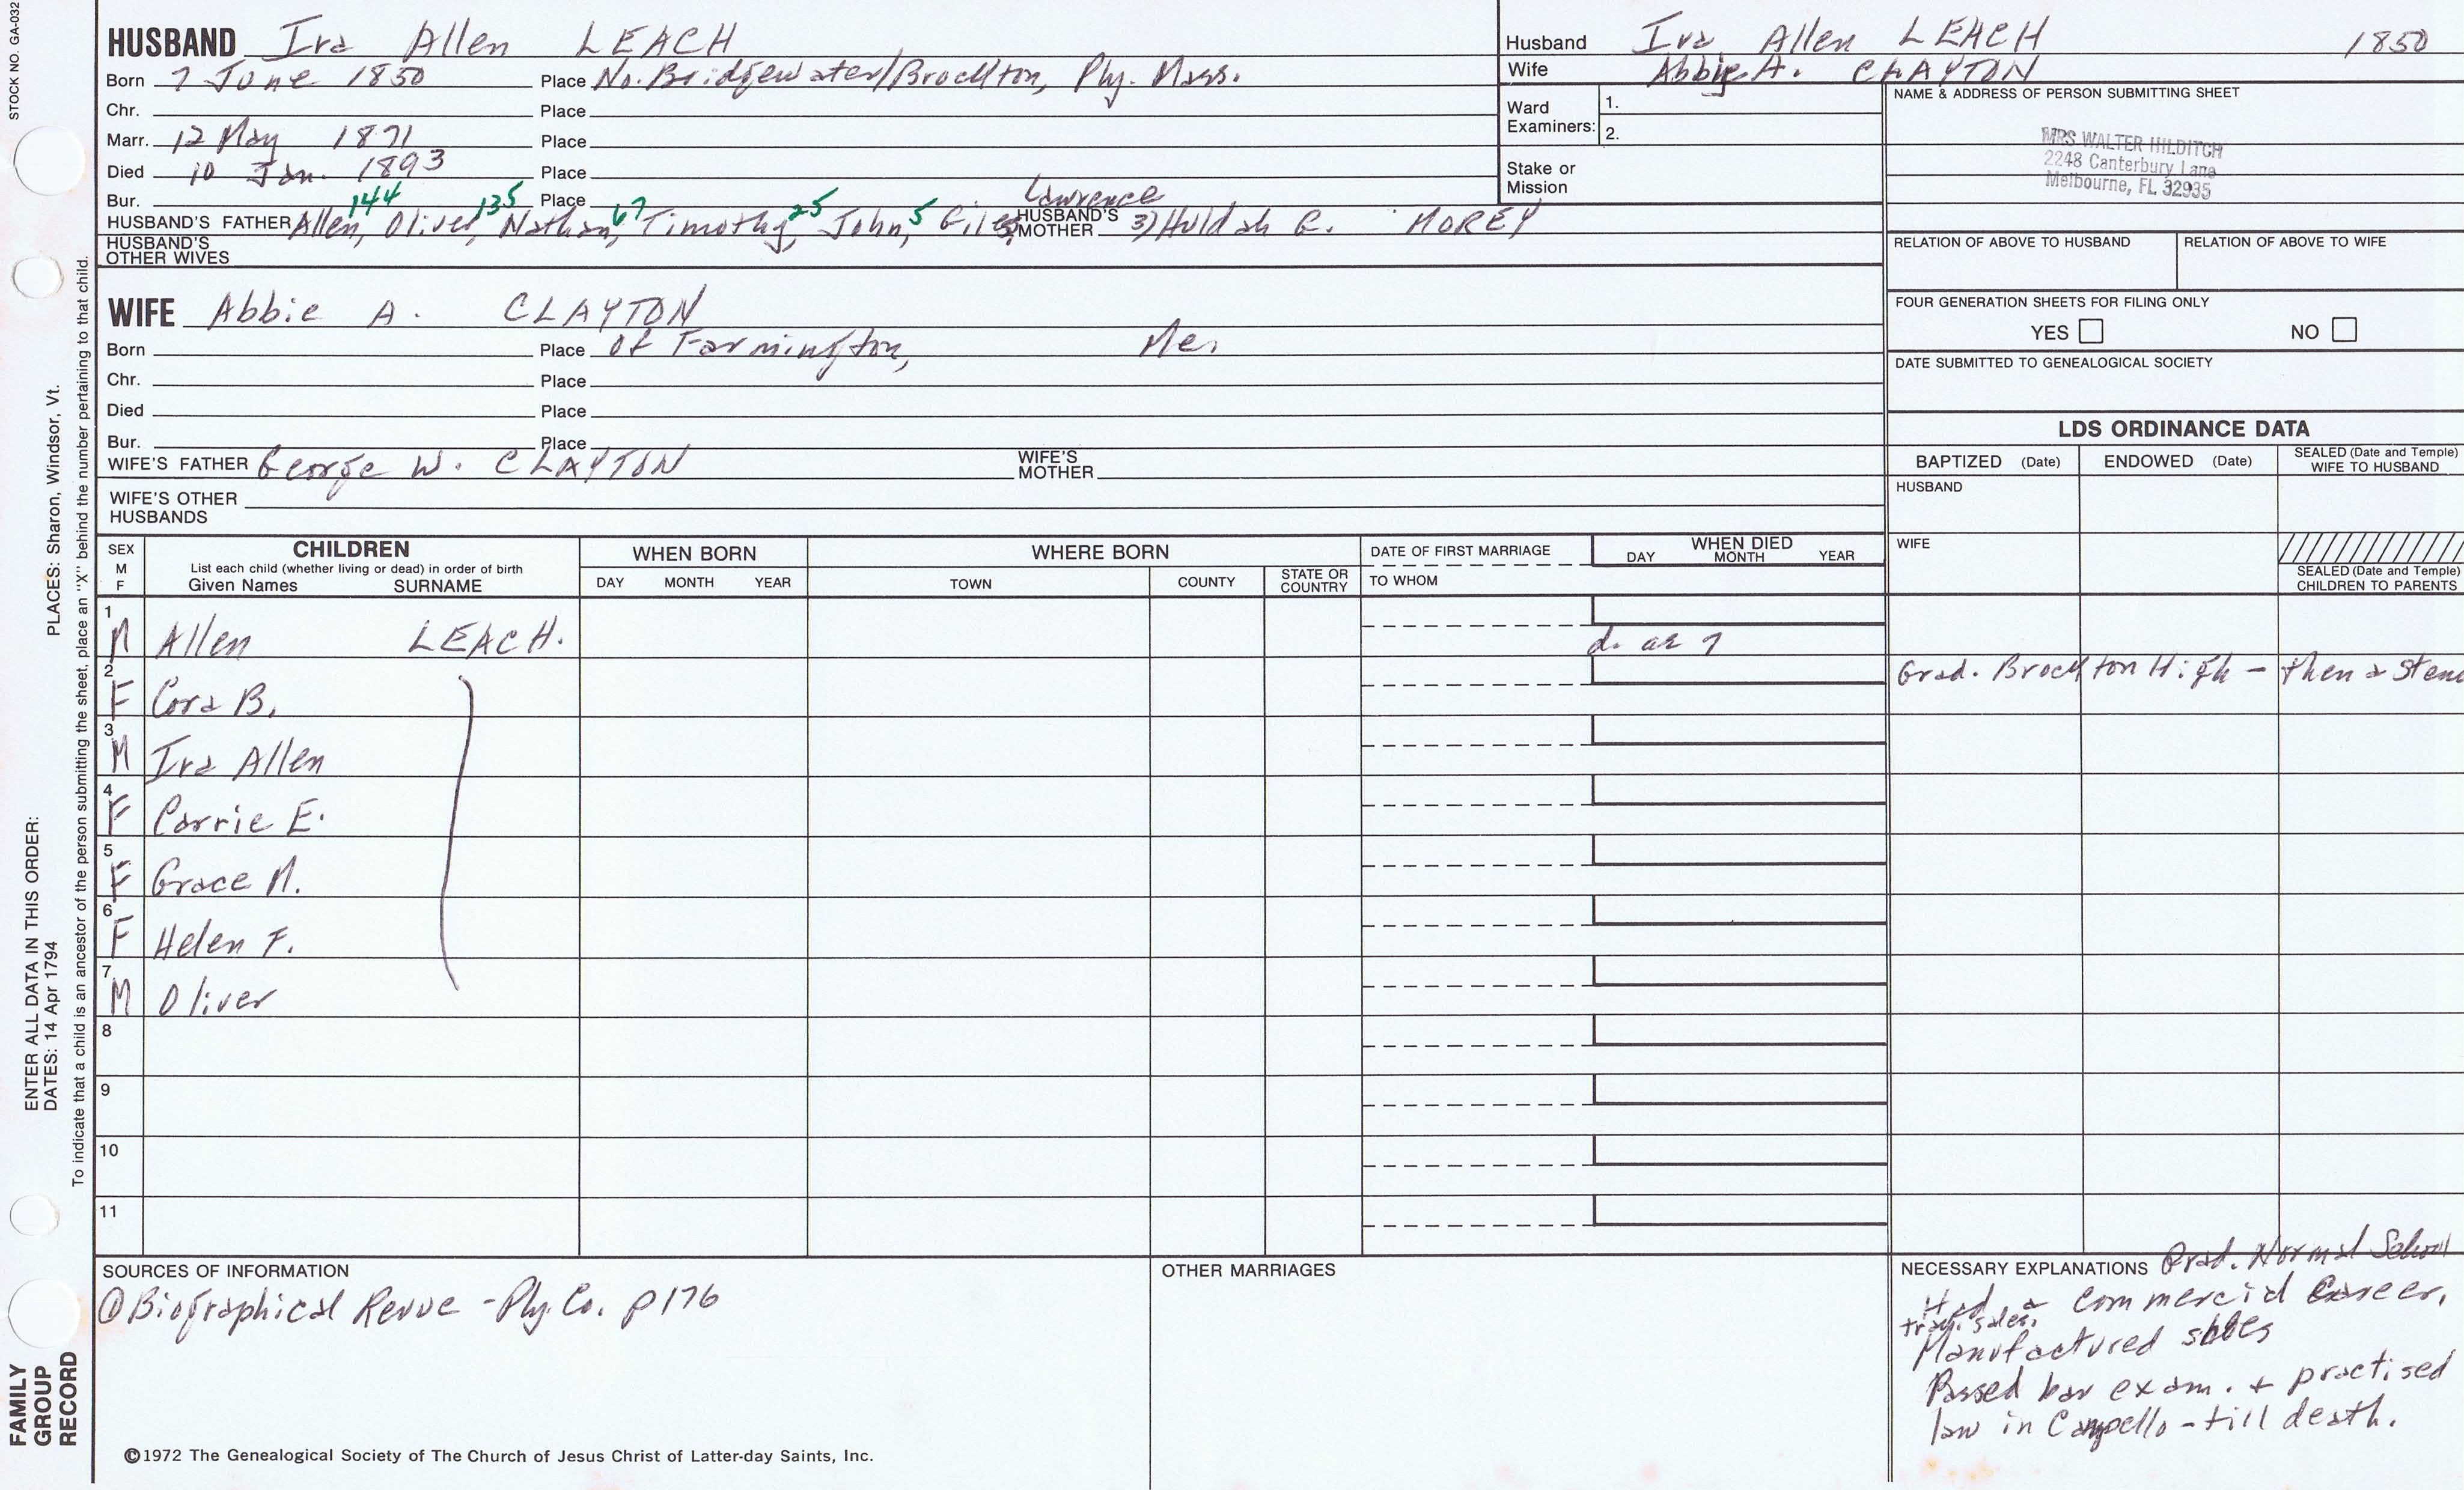 STOCK NO. GA-032
HUSBAND Ira Allen LEACH
Born 7 June 1850 Place No. Bridgewater/Brockton, Ply. Mass.
Chr. Place
Marr. 12 May 1871 Place
Died 10 Jan. 1893 Place
Bur. Place
144 135 67 25 5 Lawrence
HUSBAND'S FATHER Allen, Oliver, Nathan, Timothy, John, Giles, HUSBAND'S MOTHER 3) Huldah C. MOREY
HUSBAND'S OTHER WIVES
WIFE Abbie A. CLAYTON
Born Place of Farmington, Me.
Chr. Place
Died Place
Bur. Place
WIFE'S FATHER George W. CLAYTON WIFE'S MOTHER
WIFE'S OTHER HUSBANDS
Husband Ira Allen LEACH 1850
Wife Abbie A. CLAYTON
Ward Examiners: 1.
2.
Stake or Mission
NAME & ADDRESS OF PERSON SUBMITTING SHEET
MRS WALTER HILDITCH
2248 Canterbury Lane
Melbourne, FL 32935
RELATION OF ABOVE TO HUSBAND RELATION OF ABOVE TO WIFE
FOUR GENERATION SHEETS FOR FILING ONLY
YES NO
DATE SUBMITTED TO GENEALOGICAL SOCIETY
LDS ORDINANCE DATA
BAPTIZED (Date) ENDOWED (Date) SEALED (Date and Temple) WIFE TO HUSBAND
HUSBAND
WIFE
SEALED (Date and Temple) CHILDREN TO PARENTS
SEX M F
CHILDREN
List each child (whether living or dead) in order of birth
Given Names SURNAME
WHEN BORN
DAY MONTH YEAR
WHERE BORN
TOWN COUNTY STATE OR COUNTRY
DATE OF FIRST MARRIAGE
TO WHOM
WHEN DIED
DAY MONTH YEAR
1 M Allen LEACH. d. ae 7
2 F Cora B. Grad. Brockton High - then a Sten
3 M Ira Allen
4 F Carrie E.
5 F Grace M.
6 F Helen F.
7 M Oliver
8
9
10
11
SOURCES OF INFORMATION
① Biographical Revue - Ply. Co. p176
OTHER MARRIAGES
NECESSARY EXPLANATIONS Grad. Normal School
Had a commercial career,
trav. sales.
Manufactured shoes
Passed bar exam. + practised
law in Campello - till death.
©1972 The Genealogical Society of The Church of Jesus Christ of Latter-day Saints, Inc.
FAMILY
GROUP
RECORD
ENTER ALL DATA IN THIS ORDER:
DATES: 14 Apr 1794
PLACES: Sharon, Windsor, Vt.
To indicate that a child is an ancestor of the person submitting the sheet, place an "X" behind the number pertaining to that child.